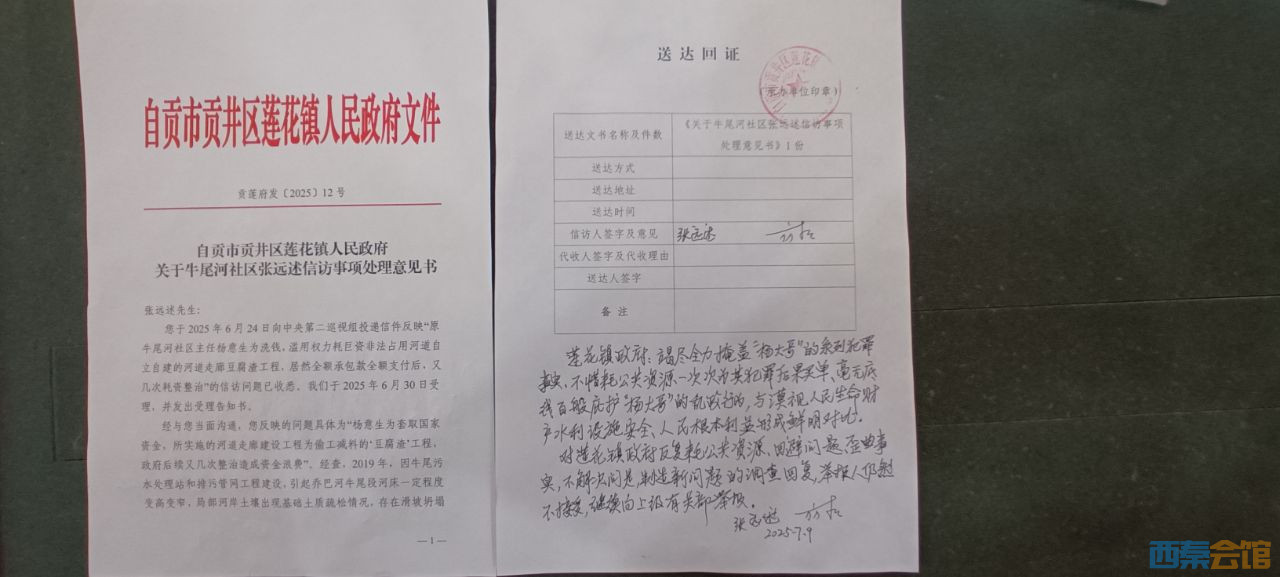 自贡市贡井区莲花镇人民政府文件
贡莲府发〔2025〕12号
自贡市贡井区莲花镇人民政府
关于牛尾河社区张远述信访事项处理意见书
张远述先生:
您于2025年6月24日向中央第二巡视组投递信件反映“原
牛尾河社区主任杨意生为洗钱,滥用权力耗巨资非法占用河道自
立自建的河道走廊豆腐渣工程,居然全额承包款全额支付后,又
几次耗资整治”的信访问题已收悉。我们于2025年6月30日受
理,并发出受理告知书。
经与您当面沟通,您反映的问题具体为“杨意生为套取国家
资金,所实施的河道走廊建设工程为偷工减料的‘豆腐渣’工程,
政府后续又几次整治造成资金浪费”。经查,2019年,因牛尾污
水处理站和排污管网工程建设,引起乔巴河牛尾段河床一定程度
变高变窄,局部河岸土壤出现基础土质疏松情况,存在滑坡坍塌
—1—
送达回证
(承办单位印章)
送达文书名称及件数
《关于牛尾河社区张远述信访事项
处理意见书》1份
送达方式
送达地址
送达时间
信访人签字及意见
张远述
代收人签字及代收理由
送达人签字
备注
莲花镇政府:竭尽全力掩盖“杨大哥”的系列犯罪
事实,不惜耗公共资源一次次为其犯罪后果买单、毫无底
线百般庇护“杨大哥”的乱政行为,与漠视人民生命财
产水利设施安全、人民根本利益形成鲜明对比。
对莲花镇政府反复耗公共资源、回避问题、歪曲事
实,不解决问题,制造新问题的调查回复,举报人仍然
不接受,继续向上级有关部举报。
张远述
2025-7.9
西秦会馆